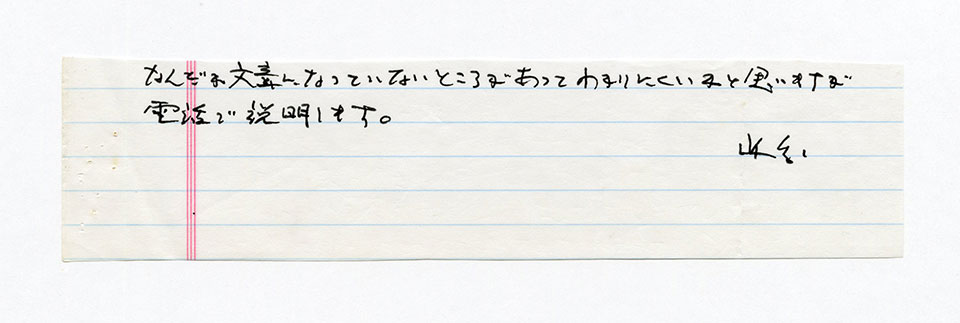 なんだか文章になっていないところがあってわかりにくいかと思いますが
電話で説明します。